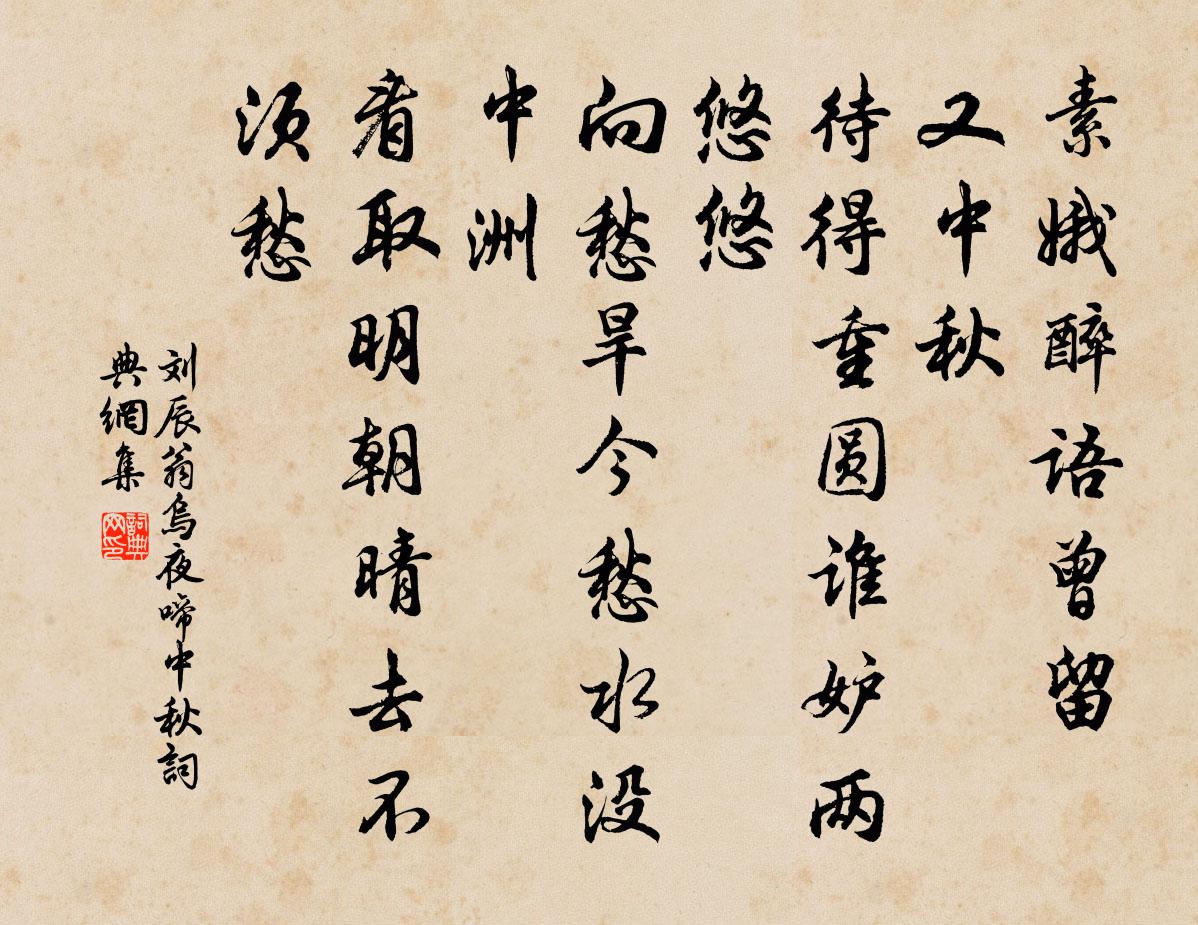 素娥醉语曾留
又中秋
待得重圆谁妒两
悠悠
向愁旱今愁水没
中洲
看取明朝晴去不
须愁
刘辰翁乌夜啼中秋詞
典網集
詞典网印